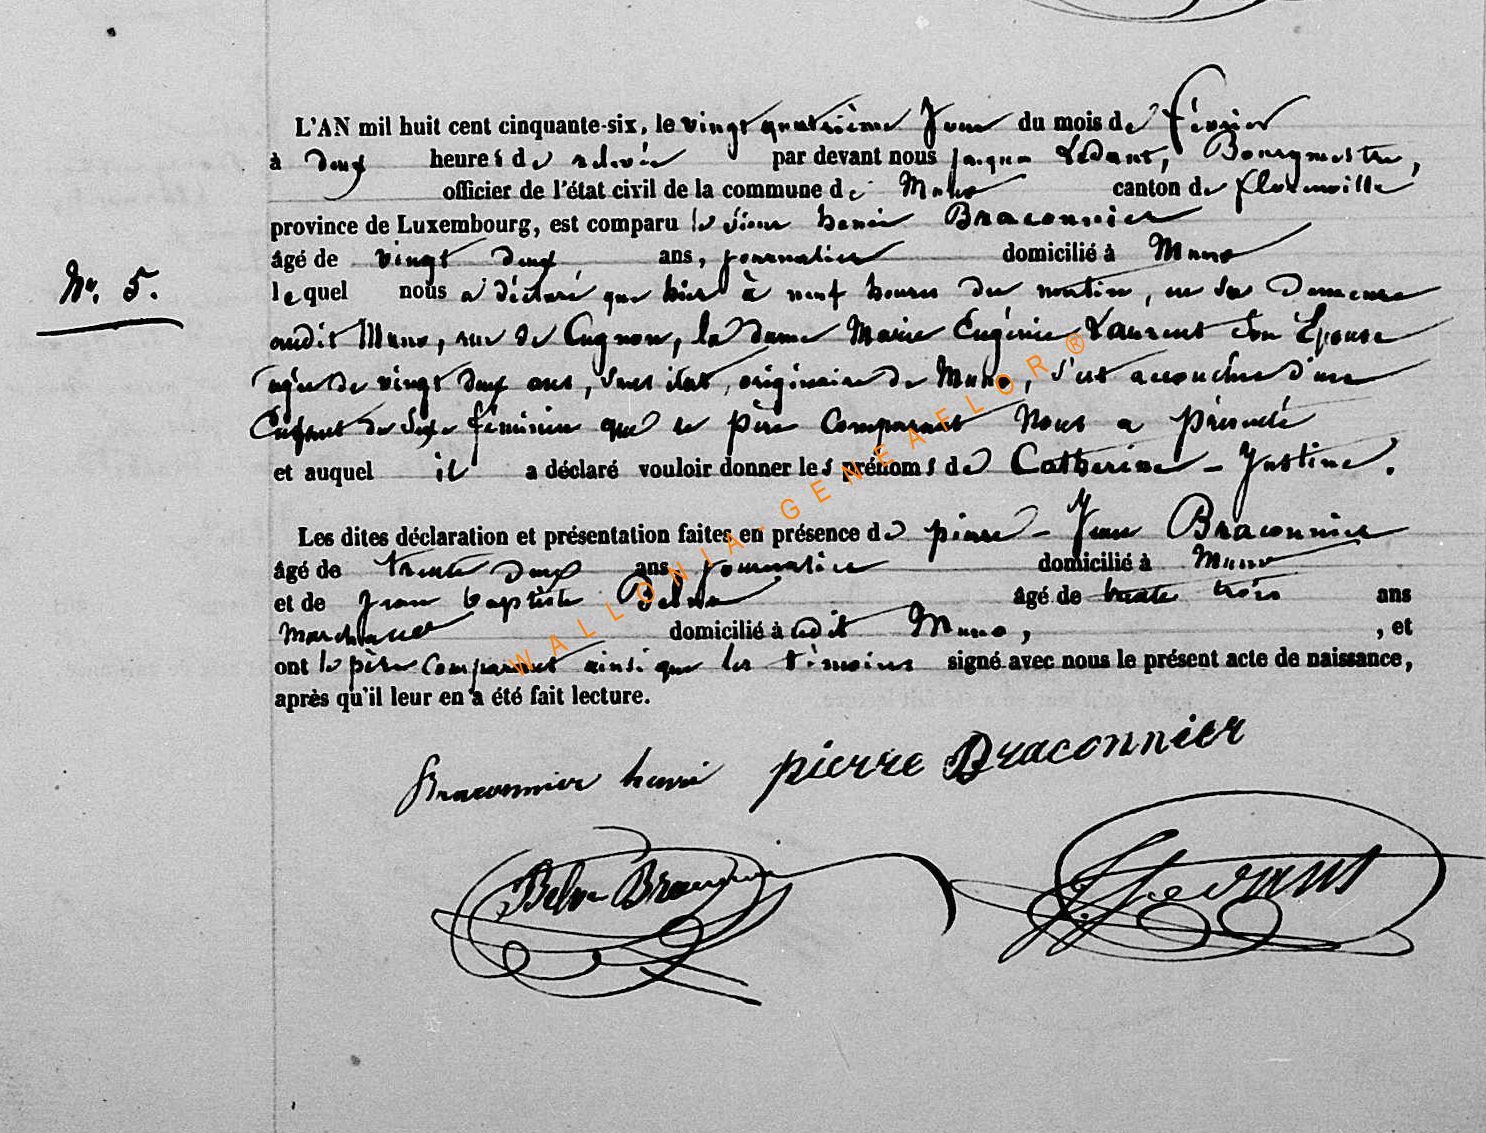 L'AN mil huit cent cinquante-six, le vingt quatrième Jour du mois de février
à deux heures de relevée par devant nous Jacques Ledant, Bourgmestre,
officier de l'état civil de la commune de Muno canton de florenville
province de Luxembourg, est comparu le sieur henri Braconnier
âgé de vingt deux ans, journalier domicilié à Muno
lequel nous a déclaré que hier à neuf heures du matin, en sa demeure
N°. 5.
audit Muno, rue de Cugnon, la dame Marie Eugénie Laurent son Epouse
agée de vingt deux ans, sans état, originaire de Muno, s'est accouchée d'un
Enfant de Sexe féminin que le père Comparant Nous a présenté
et auquel il a déclaré vouloir donner les prénoms de Catherine - Justine.
Les dites déclaration et présentation faites en présence de pierre - Jean Braconnier
âgé de trente deux ans journalier domicilié à Muno
et de Jean baptiste âgé de trente trois ans
domicilié à audit Muno, , et
ont le père Comparant ainsi que les témoins signé avec nous le présent acte de naissance,
après qu'il leur en a été fait lecture.
Braconnier henri pierre Braconnier
Ledant
WALLONIA-GENEAFLOR®